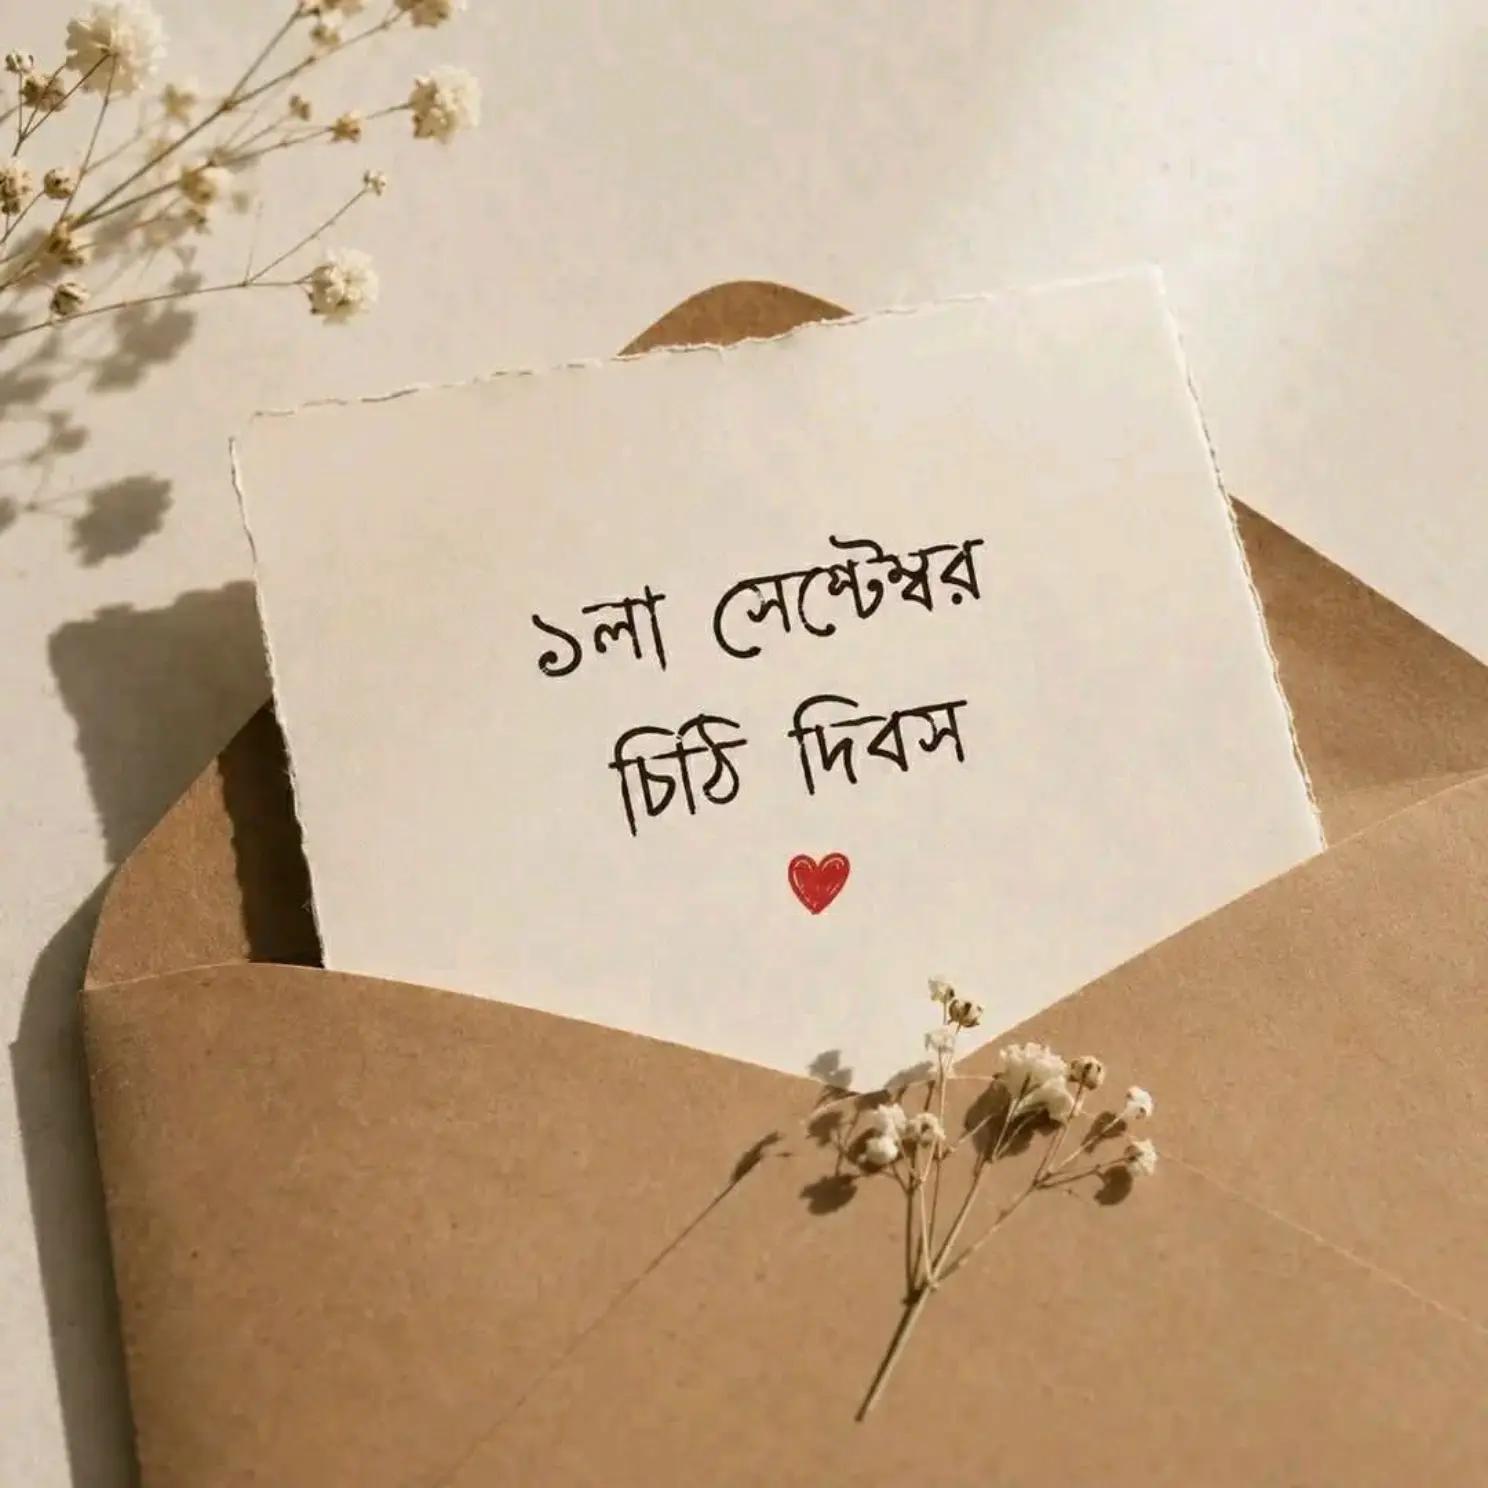 ১লা সেপ্টেম্বর
চিঠি দিবস